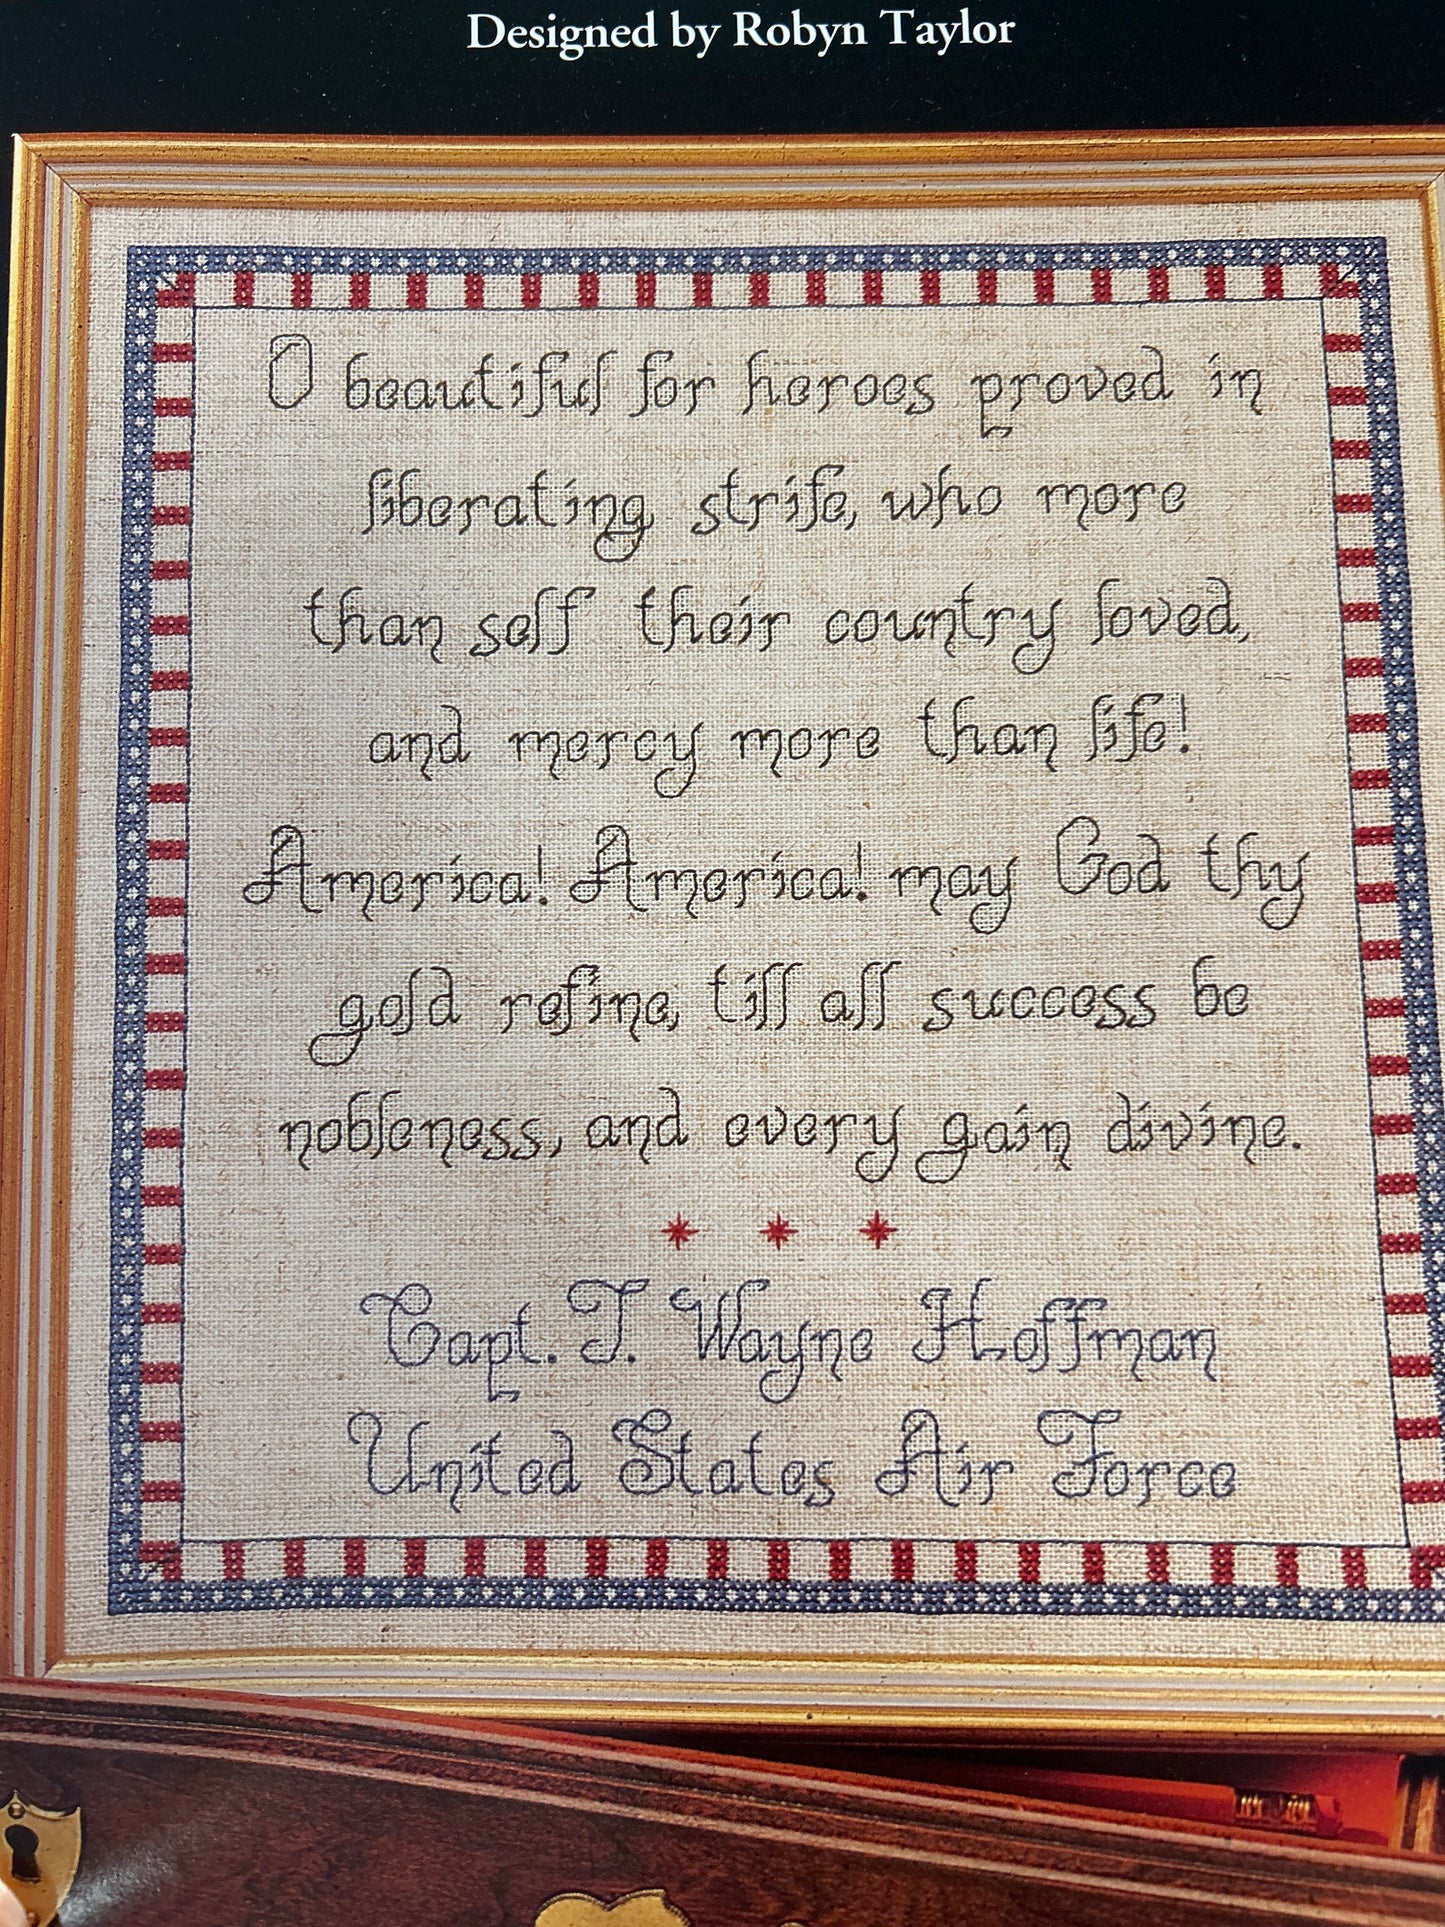 Designed by Robyn Taylor
O beautiful for heroes proved in
liberating strife, who more
than self their country loved,
and mercy more than life!
America! America! may God thy
gold refine, till all success be
nobleness, and every gain divine.
Capt. T. Wayne Hoffman
United States Air Force